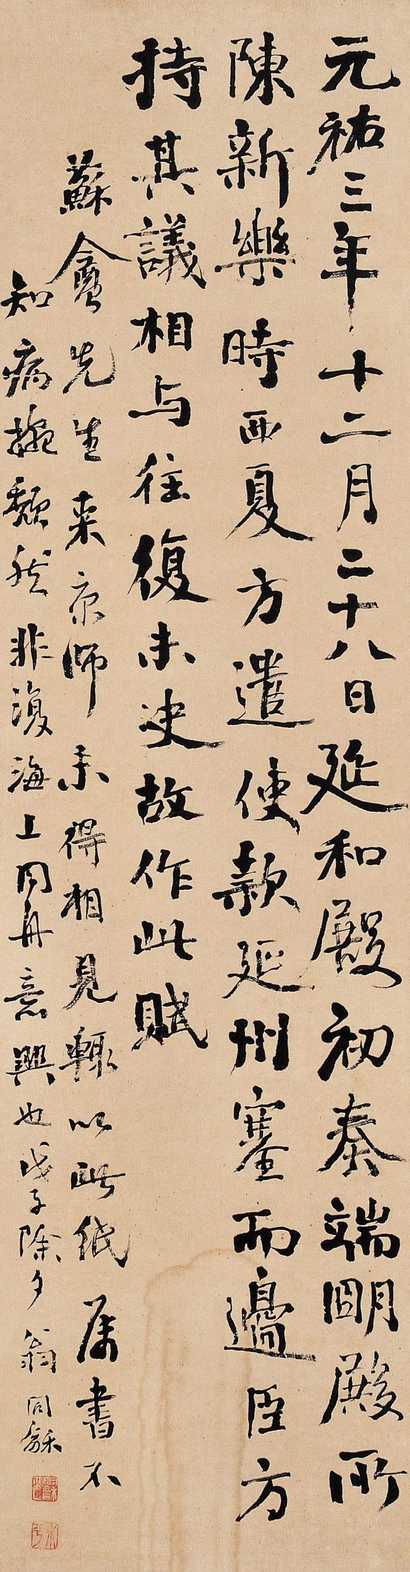 元祐三年十二月二十八日延和殿初奏端明殿所
陳新樂時西夏方遣使款延州塞而邊臣方
持其議相与往復未決故作此賦
蘇盦先生来京師未得相見輙以此紙属書不
知病捥頹然非復海上同舟意興也戊子除夕翁同龢